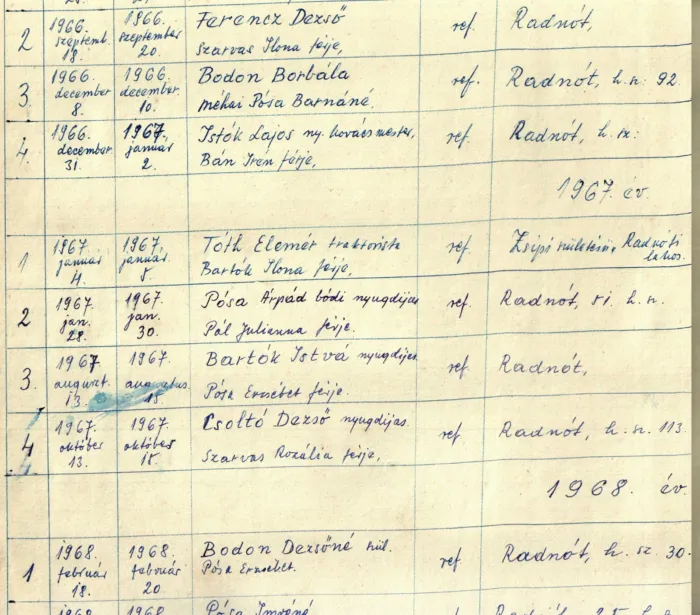 2 1966. szeptemb. 18. 1966. szeptember 20. Ferencz Dezső ref. Radnót,
Szarvas Ilona férje,
3. 1966. december 8. 1966. december. 10. Bodon Borbála ref. Radnót, h.n: 92
méhai Pósa Barnáné,
4. 1966. december 31. 1967. január 2. Istók Lajos ny. kovácsmester, ref. Radnót, h. sz:
Bán Irén férje,
1967. év.
1 1967. január 4. 1967. január 5. Tóth Elemér traktorista ref. Zsipi születésü, Radnóti lakos.
Bartók Ilona férje,
2 1967. jan. 28. 1967. jan. 30. Pósa Árpád bódi nyugdíjas ref. Radnót, h.n.
Pál Julianna férje.
3. 1967 august. 13. 1967. augustus. 15. Bartók Istvá nyugdíjas. ref. Radnót,
Pósa Erzsébet férje.
4 1967. október 13. 1967. október 15. Csoltó Dezső nyugdíjas. ref. Radnót, h.n. 113.
Szarvas Rozália férje,
1968. év.
1 1968. február 18. 1968. február 20. Bodon Dezsőné szül. ref Radnót, h. sz. 30.
Pósa Erzsébet.
1968 1968 Pósa Imréné